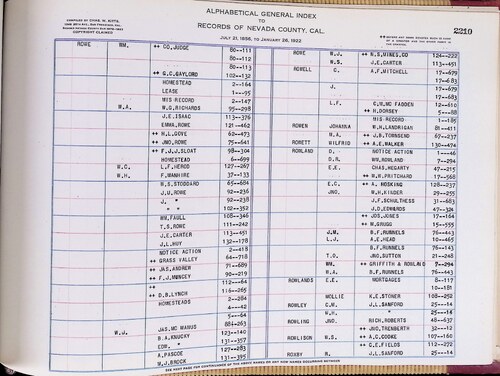 COMPILED BY CHAS. W. BUTTS,
ALPHABETICAL GENERAL INDEX
TO
RECORDS OF NEVADA COUNTY, CAL.
JULY 21, 1856, TO JANUARY 28, 1922
COPYRIGHT CLAIMED
2210
ROWE WM. ++ CO. JUDGE 80—111
80—111
80—113
++ G.C. GAYLORD 102—132
HOMESTEAD 2—164
LEASE 1—95
MIS RECORD 2—147
W.A. W.G. RICHARDS 95—298
J.E. ISAAC 113—376
EMMA, ROWE 121—462
++ H.L. GOVE 62—473
++ JNO, ROWE 75—641
++ F.J.J. SLOAT 98—304
HOMESTEAD 6—699
W.C. L.F. HEROD 127—267
W.H. F. MANHIRE 37—133
H.S. STODDARD 65—684
J.U. ROWE 92—236
J. " 92—238
" " 102—352
WM, FAULL 108—346
T.S. ROWE 111—242
J.E. CARTER 113—451
J.L. HOY 132—178
NOTICE ACTION 2—418
++ GRASS VALLEY 64—718
++ JAS, ANDREW 71—689
++ F.J. MUNCEY 90—219
++ 112—64
++ D.B. LYNCH 116—265
HOMESTEADS 2—284
4—42
5—64
W.J. JAS, MC MANUS 884—263
B.A. KNUCKY 123—140
EDW, " 131—357
A. PASCOE 127—283
M.J. BROCK 131—395
ROWE W.J. ++ N.S. MINES, CO 124—222
W.S. J.E. CARTER 113—451
ROWELL C. A.F. MITCHELL 17—679
17—683
J. 17—679
17—683
L.F. C.M. MC FADDEN 12—610
++ H. DORSEY 5—88
MIS RECORD 1—185
ROWEN JOHANNA W.H. LANDRIGAN 81—411
N.A. ++ J.B. TOWNSEND 67—237
ROWETT WILFRID ++ A.E. WALKER 130—474
ROWLAND D. NOTICE ACTION 1—46
D.R. WM, ROWLAND 7—294
E.E. CHAS, HEGARTY 47—215
++ W.H. PRITCHARD 17—568
E.G. ++ A. HOSKING 128—237
JNO, W.H. KINDER 29—255
J.F. SCHULTHESS 31—683
J.D. EDWARDS 47—324
++ JOS, JONES 17—164
++ M. GRUGG 15—555
J.M. B.F. RUNNELS 76—443
L.J. A.E. HEAD 10—465
B.F. RUNNELS 76—143
T.O. JNO, SUTTON 21—248
WM. ++ GRIFFITH & ROWLAND 7—294
W.A. B.F. RUNNELS 76—443
ROWLANDS E.E. MORTGAGES 8—117
10—181
MOLLIE K.E. STONER 108—252
ROWLEY C.M. J.L. SANFORD 25—14
H. " 25—14
ROWLING JNO. RICH, ROBERTS 48—637
++ JNO, TRENBERTH 32—12
ROWLISON N.S. ++ A.C. COOKE 107—168
++ C.E. FIELDS 112—272
ROXBY N. J.L. SANFORD 25—14